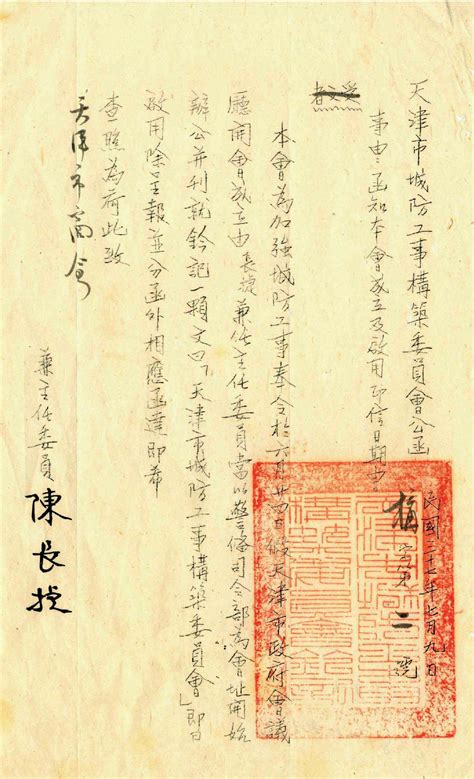 天津市城防工事構築委員會公函
民國三十七年七月九日
構字第二號
事由：函知本會成立及啟用印信日期由
受文者
本會為加強城防工事奉令於六月廿四日假天津市政府會議
廳開會成立由長捷兼任主任委員當以警備司令部為會址開始
辦公并刊就鈐記一顆文曰「天津市城防工事構築委員會」即日
啟用除呈報並分函外相應函達即希
查照為荷此致
天津市商會
兼主任委員 陳長捷